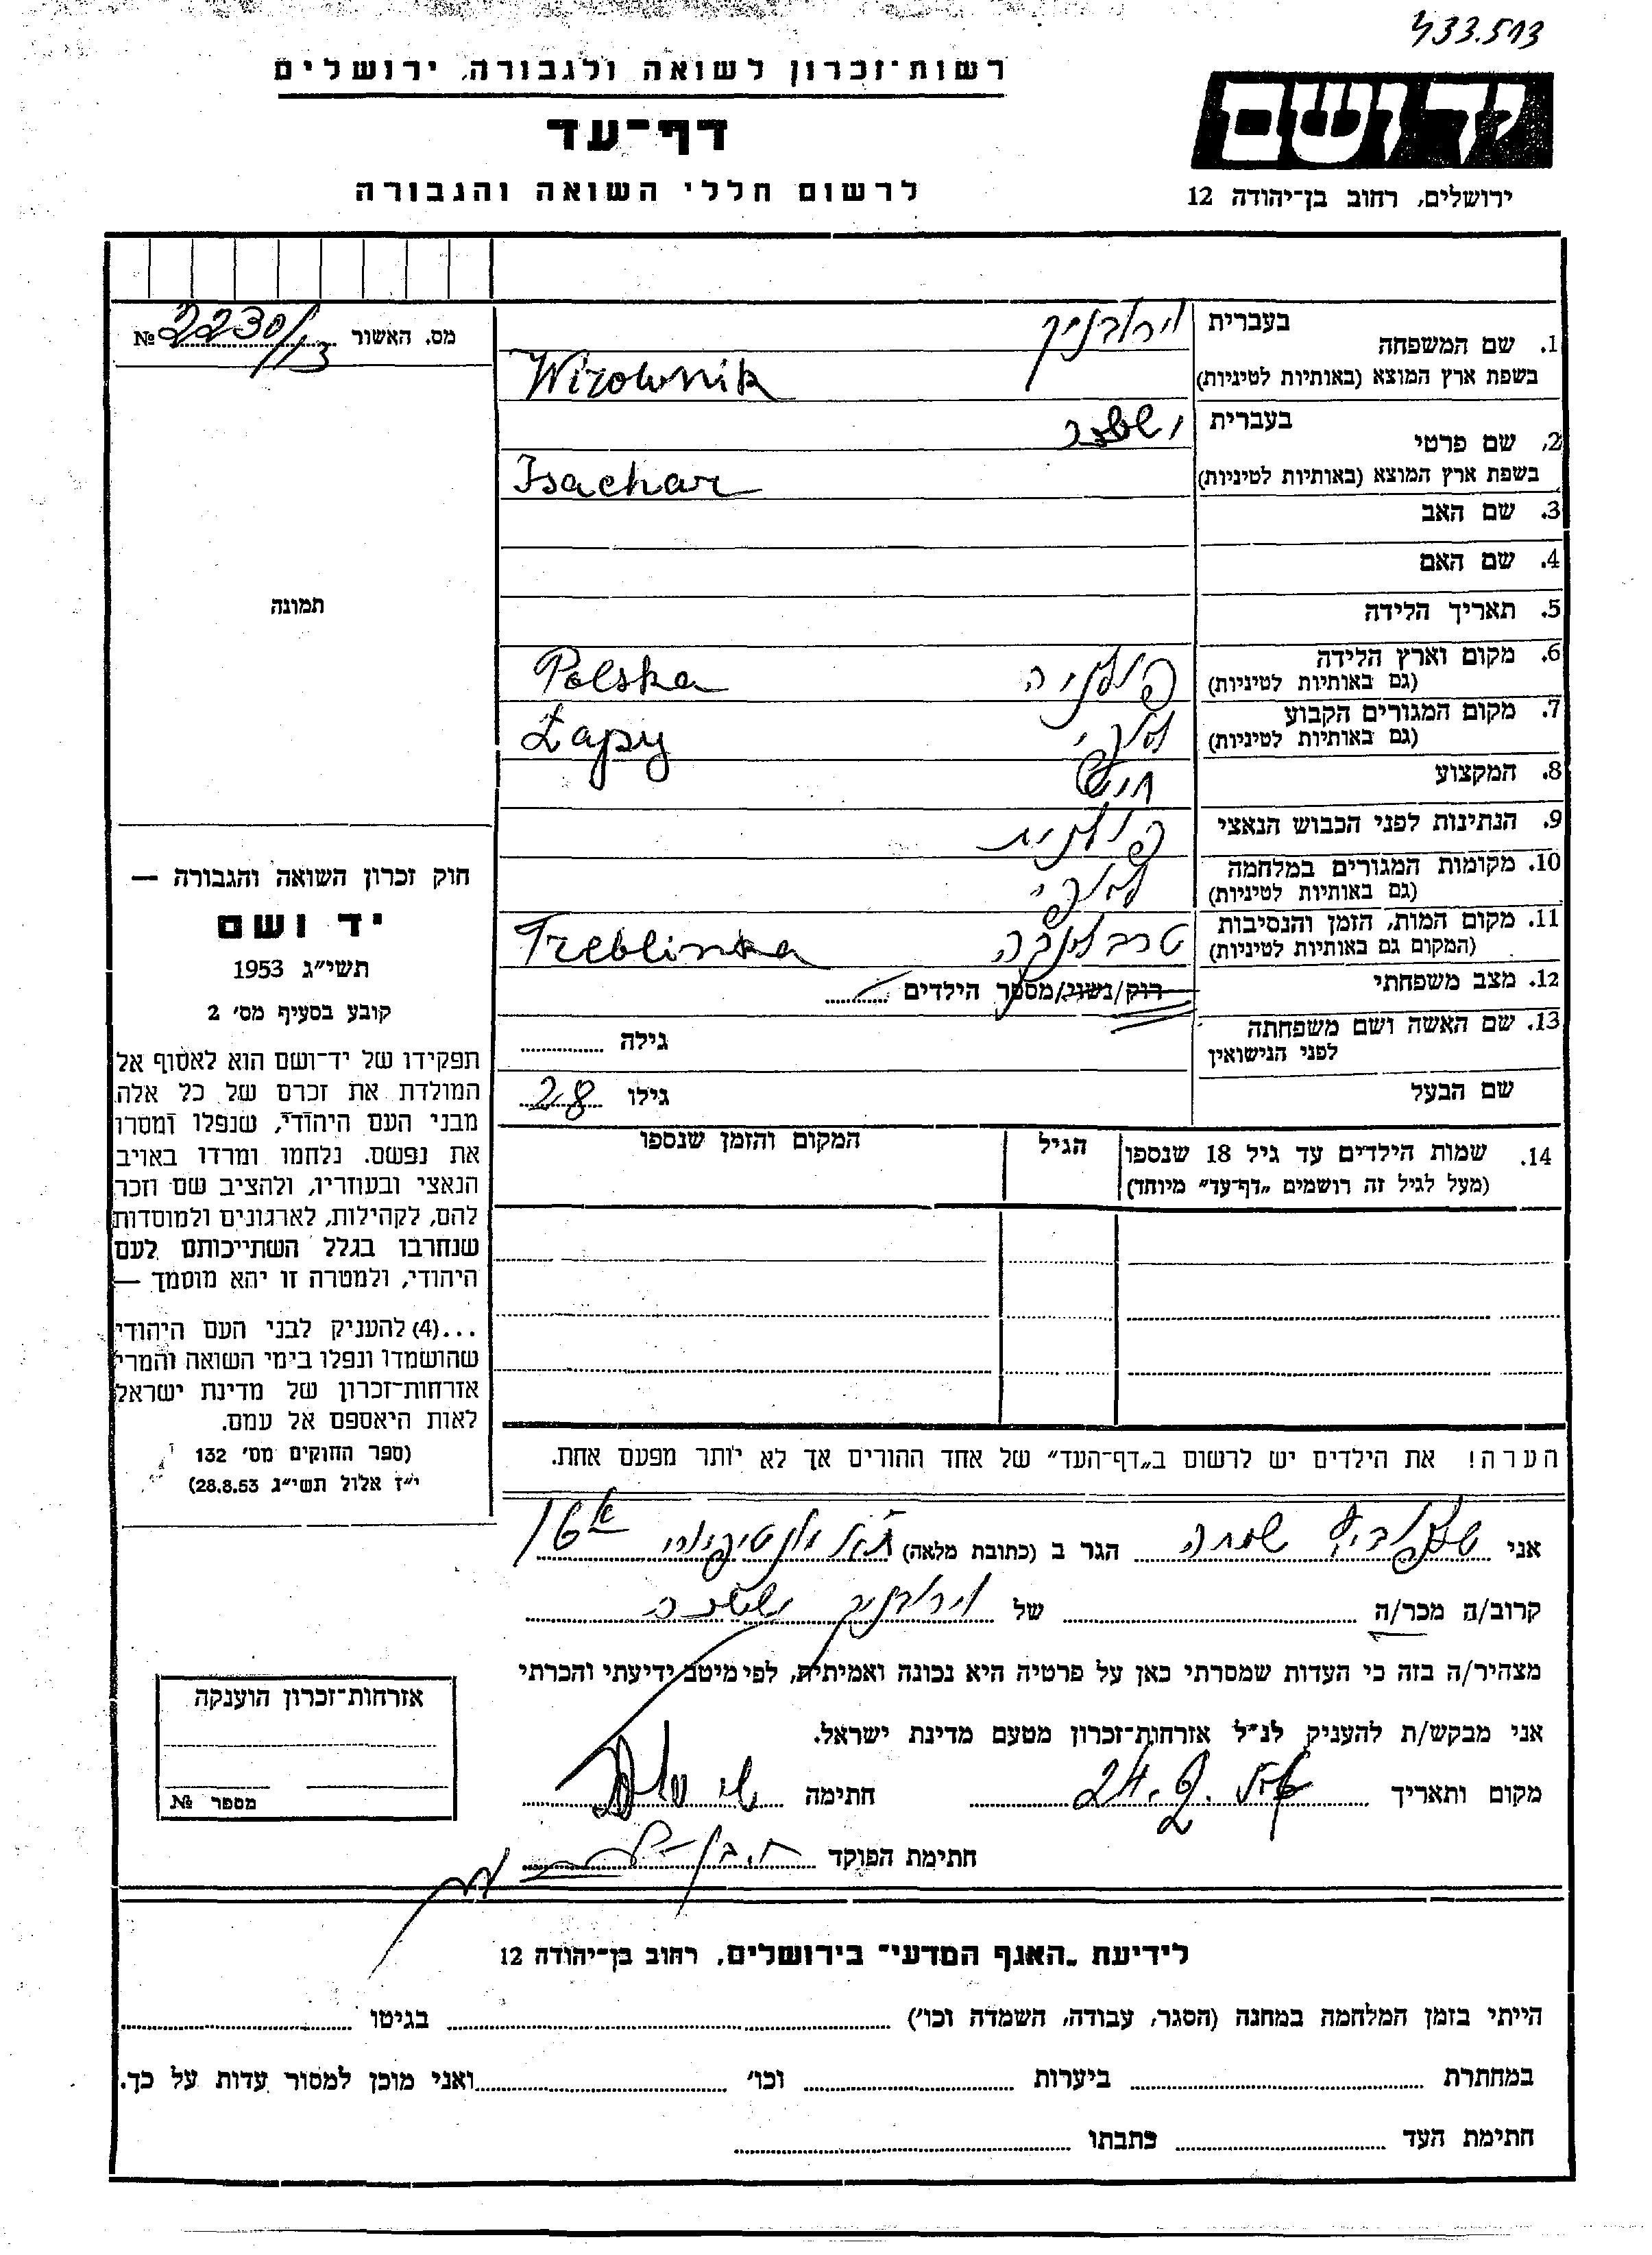 433.593
רשות־זכרון לשואה ולגבורה, ירושלים
דף־עד
לרשום חללי השואה והגבורה
יד ושם
ירושלים, רחוב בן־יהודה 12
מס. האשור 2230/113 №
תמונה
חוק זכרון השואה והגבורה —
יד ושם
תשי״ג 1953
קובע בסעיף מס׳ 2
תפקידו של יד־ושם הוא לאסוף אל
המולדת את זכרם של כל אלה
מבני העם היהודי, שנפלו ומסרו
את נפשם. נלחמו ומרדו באויב
הנאצי ובעוזריו, ולהציב שם וזכר
להם, לקהילות, לארגונים ולמוסדות
שנחרבו בגלל השתייכותם לעם
היהודי, ולמטרה זו יהא מוסמך —
...(4) להעניק לבני העם היהודי
שהושמדו ונפלו בימי השואה והמרי
אזרחות־זכרון של מדינת ישראל
לאות היאספם אל עמם.
(ספר החוקים מס׳ 132
י״ז אלול תשי״ג 28.8.53)
1. שם המשפחה בעברית וירובניק
בשפת ארץ המוצא (באותיות לטיניות) Wirownik
2. שם פרטי בעברית יששכר
בשפת ארץ המוצא (באותיות לטיניות) Isachar
3. שם האב
4. שם האם
5. תאריך הלידה
6. מקום וארץ הלידה פולניה Polska
(גם באותיות לטיניות)
7. מקום המגורים הקבוע לפי Łapy
(גם באותיות לטיניות)
8. המקצוע
9. הנתינות לפני הכבוש הנאצי פולנית
10. מקומות המגורים במלחמה
(גם באותיות לטיניות)
11. מקום המות, הזמן והנסיבות טרבלינקה Treblinka
(המקום גם באותיות לטיניות)
12. מצב משפחתי רוק/נשוי/מספר הילדים
13. שם האשה ושם משפחתה גילה
לפני הנישואין
שם הבעל גילו 28
14. שמות הילדים עד גיל 18 שנספו הגיל המקום והזמן שנספו
(מעל לגיל זה רושמים „דף־עד״ מיוחד)
הערה! את הילדים יש לרשום ב„דף־העד״ של אחד ההורים אך לא יותר מפעם אחת.
אני שמחה הגר ב (כתובת מלאה)
קרוב/ה מכר/ה של וירובניק יששכר
מצהיר/ה בזה כי העדות שמסרתי כאן על פרטיה היא נכונה ואמיתית, לפי מיטב ידיעתי והכרתי
אני מבקש/ת להעניק לנ״ל אזרחות־זכרון מטעם מדינת ישראל.
מקום ותאריך חתימה
חתימת הפוקד
אזרחות־זכרון הוענקה
מספר №
לידיעת „האגף המדעי״ בירושלים, רחוב בן־יהודה 12
הייתי בזמן המלחמה במחנה (הסגר, עבודה, השמדה וכו׳) בגיטו
במחתרת ביערות וכו׳ ואני מוכן למסור עדות על כך.
חתימת העד כתבתו